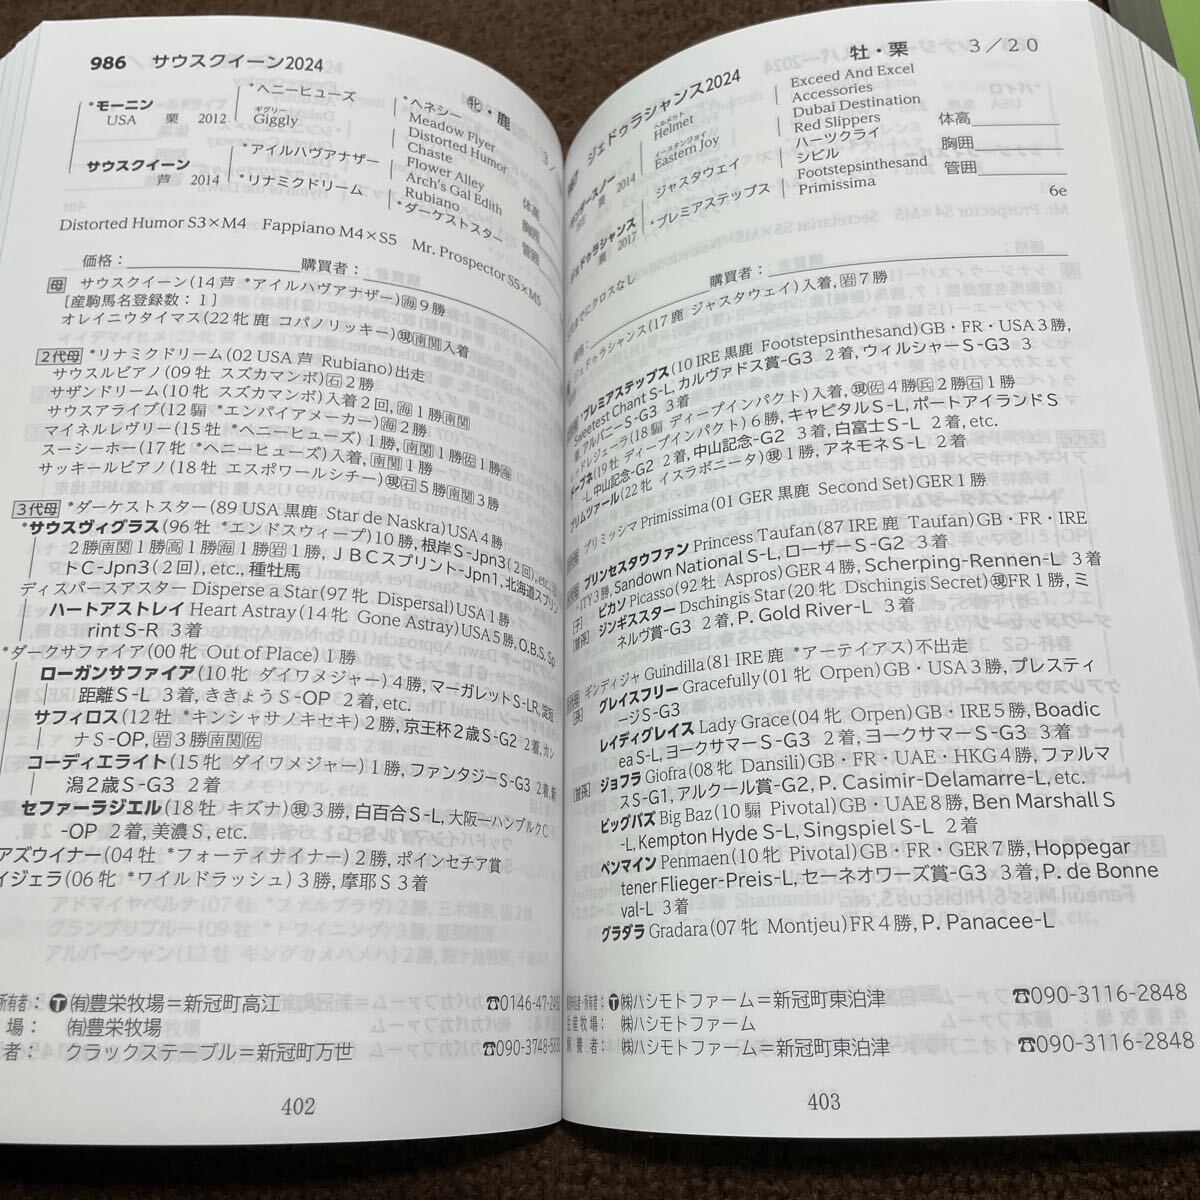 986 サウスクイーン2024
牝・鹿
3／
*モーニン
USA 栗 2012
*ヘニーヒューズ
ギグリー
Giggly
*ヘネシー
Meadow Flyer
Distorted Humor
Chaste
サウスクイーン
芦 2014
*アイルハヴアナザー
*リナミクドリーム
Flower Alley
Arch's Gal Edith
Rubiano
*ダーケストスター
体高
胸囲
管囲
Distorted Humor S3×M4 Fappiano M4×S5 Mr. Prospector S5×M5
価格： 購買者：
母 サウスクイーン(14 芦 *アイルハヴアナザー)海9勝
[産駒馬名登録数：1]
オレイニウタイマス(22 牝 鹿 コパノリッキー)現南関入着
2代母 *リナミクドリーム(02 USA 芦 Rubiano)出走
サウスルビアノ(09 牡 スズカマンボ)石2勝
サザンドリーム(10 牝 スズカマンボ)入着2回,海1勝南関
サウスアライブ(12 騸 *エンパイアメーカー)海2勝
マイネルレヴリー(15 牡 *ヘニーヒューズ)1勝,南関1勝佐1勝海
スーシーホー(17 牝 *ヘニーヒューズ)入着,南関1勝
サッキールビアノ(18 牡 エスポワールシチー)現石5勝南関3勝
3代母 *ダーケストスター(89 USA 黒鹿 Star de Naskra)USA4勝
*サウスヴィグラス(96 牡 *エンドスウィープ)10勝,根岸S-Jpn3(2回),etc.海
2勝南関1勝高1勝海1勝岩1勝,JBCスプリント-Jpn1,北海道スプリン
トC-Jpn3(2回),etc.,種牡馬
ディスパースアスター Disperse a Star(97 牝 Dispersal)USA1勝
ハートアストレイ Heart Astray(14 牝 Gone Astray)USA5勝,O.B.S. Sp
rint S-R 3着
*ダークサファイア(00 牝 Out of Place)1勝
ローガンサファイア(10 牝 ダイワメジャー)4勝,マーガレットS-LR,淀短
距離S-L 3着,ききょうS-OP 2着,etc.
サフィロス(12 牡 *キンシャサノキセキ)2勝,京王杯2歳S-G2 2着,カン
ナS-OP,岩3勝南関佐
コーディエライト(15 牝 ダイワメジャー)1勝,ファンタジーS-G3 2着,新
潟2歳S-G3 2着
セファーラジエル(18 牡 キズナ)現3勝,白百合S-L,大阪ーハンブルクC
-OP 2着,美濃S,etc.
アズウイナー(04 牡 *フォーティナイナー)2勝,ポインセチア賞
イジェラ(06 牝 *ワイルドラッシュ)3勝,摩耶S3着
所有者：Ⓣ㈲豊栄牧場＝新冠町高江 ☎0146-47-24
場： ㈲豊栄牧場
者： クラックステーブル＝新冠町万世 ☎090-3748-55
402
ジェドゥラシャンス2024
牡・栗
3／20
2014
ヘルメット
Helmet
イースタンジョイ
Eastern Joy
Exceed And Excel
Accessories
Dubai Destination
Red Slippers
ジェドゥラシャンス
鹿 2017
ジャスタウェイ
*プレミアステップス
ハーツクライ
シビル
Footstepsinthesand
Primissima
体高
胸囲
管囲
6e
代までにクロスなし
価格： 購買者：
ジェドゥラシャンス(17 鹿 ジャスタウェイ)入着,岩7勝
*プレミアステップス(10 IRE 黒鹿 Footstepsinthesand)GB・FR・USA3勝,
Sweetest Chant S-L,カルヴァドス賞-G3 2着,ウィルシャーS-G3 3
着,アルバニーS-G3 3着
ドレジェーラ(18 騸 ディープインパクト)入着,現佐4勝兵2勝石1勝
ドーブネ(19 牡 ディープインパクト)6勝,キャピタルS-L,ポートアイランドS
-L,中山記念-G2 2着,中山記念-G2 3着,白富士S-L 2着,etc.
プリムツァール(22 牝 イスラボニータ)現1勝,アネモネS-L 2着
プリミッシマ Primissima(01 GER 黒鹿 Second Set)GER1勝
プリンセスタウファン Princess Taufan(87 IRE 鹿 Taufan)GB・FR・IRE
・ITY3勝,Sandown National S-L,ローザーS-G2 3着
ピカソ Picasso(92 牡 Aspros)GER4勝,Scherping-Rennen-L 3着
[子] ジンギススター Dschingis Star(20 牝 Dschingis Secret)現FR1勝,ミ
[曽孫] ネルヴ賞-G3 2着,P. Gold River-L 3着
ギンディジャ Guindilla(81 IRE 鹿 *アーテイアス)不出走
[孫] グレイスフリー Gracefully(01 牝 Orpen)GB・USA3勝,プレスティ
ージS-G3
レイディグレイス Lady Grace(04 牝 Orpen)GB・IRE5勝,Boadic
ea S-L,ヨークサマーS-G3 2着,ヨークサマーS-G3 3着
[曽孫] ジョフラ Giofra(08 牝 Dansili)GB・FR・UAE・HKG4勝,ファルマ
スS-G1,アルクール賞-G2,P. Casimir-Delamarre-L,etc.
ビッグバズ Big Baz(10 騸 Pivotal)GB・UAE8勝,Ben Marshall S
-L,Kempton Hyde S-L,Singspiel S-L 2着
ペンマイン Penmaen(10 牝 Pivotal)GB・FR・GER7勝,Hoppegar
tener Flieger-Preis-L,セーネオワーズ賞-G3 3着,P. de Bonne
val-L 3着
グラダラ Gradara(07 牝 Montjeu)FR4勝,P. Panacee-L
所有者：Ⓣ㈱ハシモトファーム＝新冠町東泊津 ☎090-3116-2848
生産牧場： ㈱ハシモトファーム
飼養者： ㈱ハシモトファーム＝新冠町東泊津 ☎090-3116-2848
403